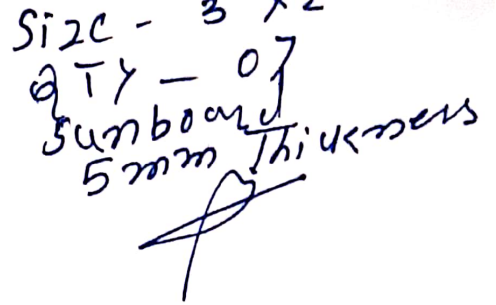 Size - 3 x 2
QTY - 07
Sunboard
5 mm Thickness